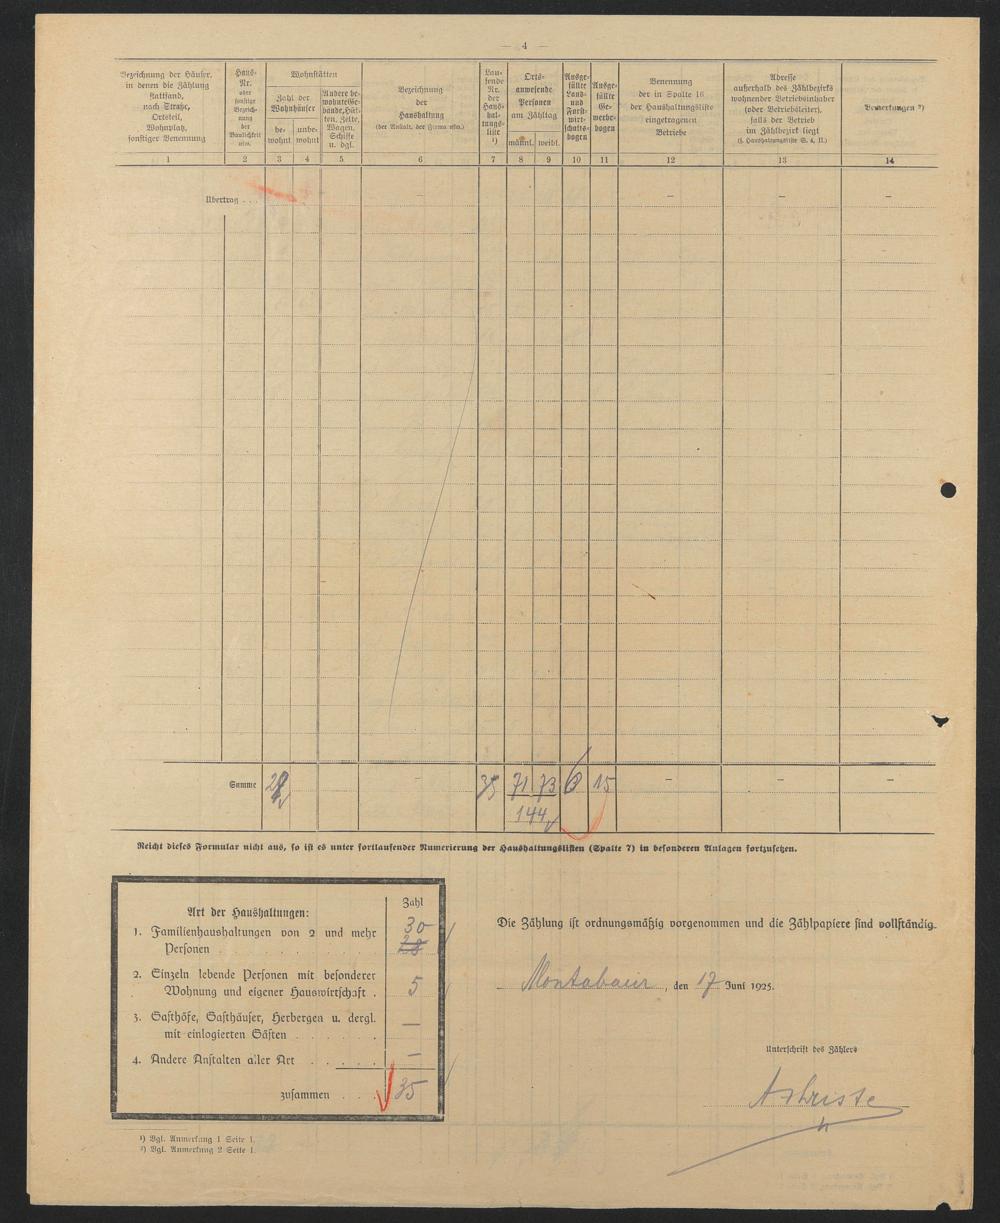 — 4 —
Bezeichnung der Häuser,
in denen die Zählung
stattfand,
nach Straße,
Ortsteil,
Wohnplatz,
sonstiger Benennung
Haus-
Nr.
oder
sonstige
Bezeich-
nung
der
Baulichkeit
usw.
Wohnstätten
Zahl der
Wohnhäuser
be-
wohnt
unbe-
wohnt
Andere be-
wohnte Ge-
bäude, Hüt-
ten, Zelte,
Wagen,
Schiffe
u. dgl.
Bezeichnung
der
Haushaltung
(der Anstalt, der Firma usw.)
Lau-
fende
Nr.
der
Haus-
hal-
tungs-
liste
¹)
Orts-
anwesende
Personen
am Zähltag
männl.
weibl.
Ausge-
füllte
Land-
und
Forst-
wirt-
schafts-
bogen
Ausge-
füllte
Ge-
werbe-
bogen
Benennung
der in Spalte 16
der Haushaltungsliste
eingetragenen
Betriebe
Adresse
außerhalb des Zählbezirks
wohnender Betriebsinhaber
(oder Betriebsleiter),
falls der Betrieb
im Zählbezirk liegt
(s. Haushaltungsliste S. 4, II.)
Bemerkungen ²)
1 2 3 4 5 6 7 8 9 10 11 12 13 14
Übertrag . . . — — — —
Summe — 35 71 73 6 15 — — —
144
Reicht dieses Formular nicht aus, so ist es unter fortlaufender Numerierung der Haushaltungslisten (Spalte 7) in besonderen Anlagen fortzusetzen.
Art der Haushaltungen:
Zahl
1. Familienhaushaltungen von 2 und mehr
Personen . . . . . . . . . . . 30
28
2. Einzeln lebende Personen mit besonderer
Wohnung und eigener Hauswirtschaft . 5
3. Gasthöfe, Gasthäuser, Herbergen u. dergl.
mit einlogierten Gästen . . . . . . —
4. Andere Anstalten aller Art . . . . . —
zusammen . . . 35
Die Zählung ist ordnungsmäßig vorgenommen und die Zählpapiere sind vollständig.
Montabaur, den 17 Juni 1925.
Unterschrift des Zählers
¹) Vgl. Anmerkung 1 Seite 1.
²) Vgl. Anmerkung 2 Seite 1.